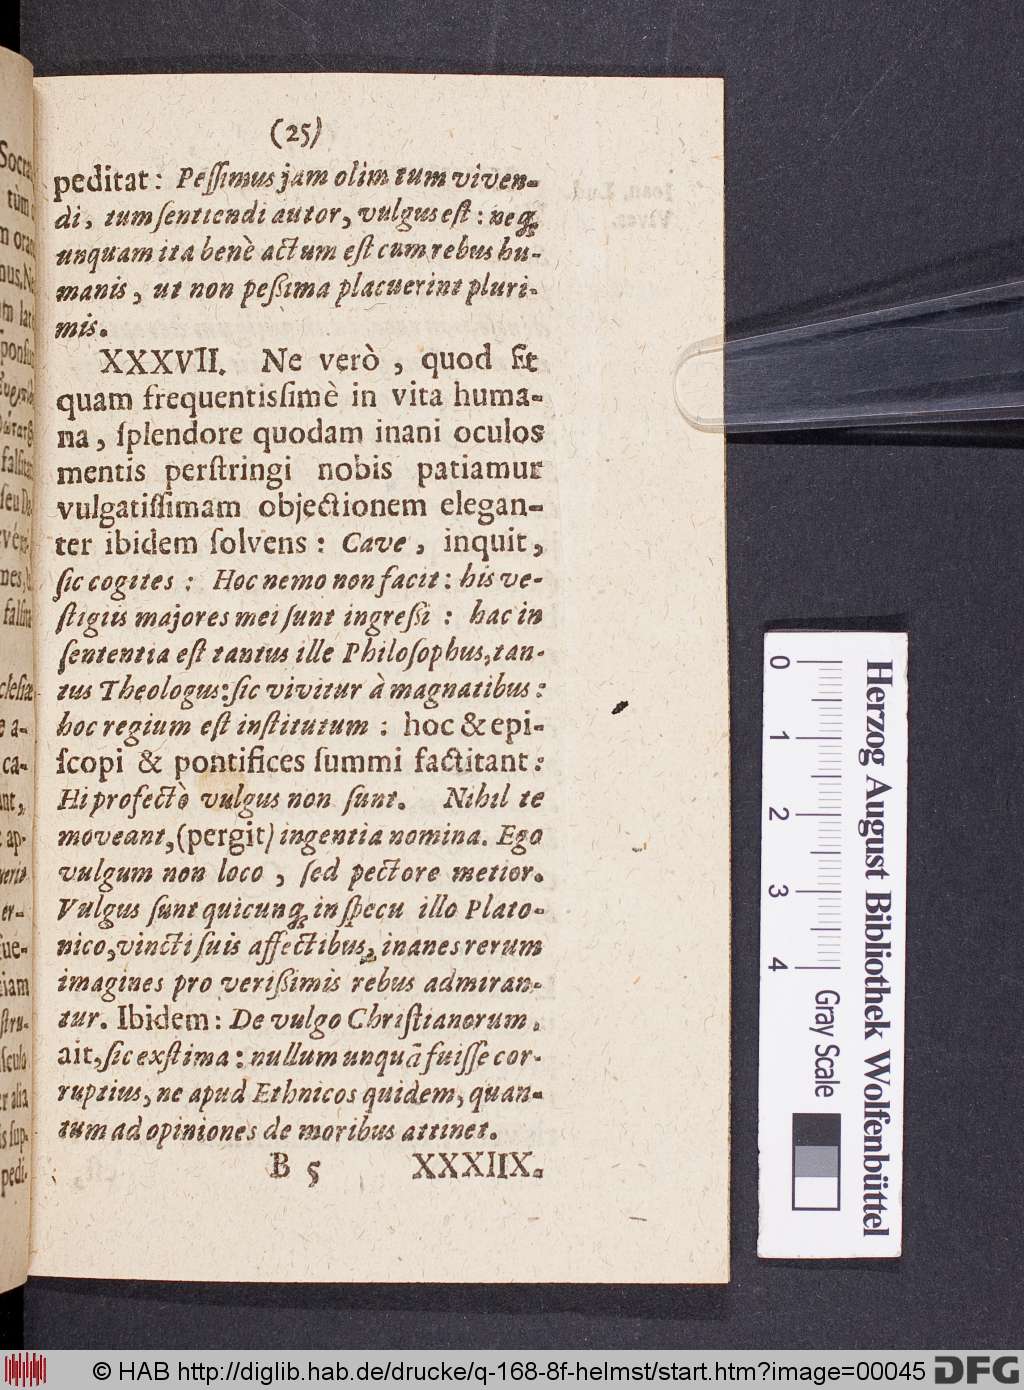 (25)
peditat: Peſſimus jam olim tum viven-
di, tum ſentiendi autor, vulgus eſt: neq́;
unquam ita benè actum eſt cum rebus hu-
manis, ut non peſsima placuerint pluri-
mis.
XXXVII. Ne verò, quod ſit
quam frequentisſimè in vita huma-
na, ſplendore quodam inani oculos
mentis perſtringi nobis patiamur
vulgatiſſimam objectionem elegan-
ter ibidem ſolvens: Cave, inquit,
ſic cogites: Hoc nemo non facit: his ve-
ſtigiis majores mei ſunt ingreſsi: hac in
ſententia eſt tantus ille Philoſophus, tan-
tus Theologus: ſic vivitur à magnatibus:
hoc regium eſt inſtitutum: hoc & epi-
ſcopi & pontifices ſummi factitant:
Hi profectò vulgus non ſunt. Nihil te
moveant, (pergit) ingentia nomina. Ego
vulgum non loco, ſed pectore metior.
Vulgus ſunt quicunq́; in ſpecu illo Plato-
nico, vincti ſuis affectibus, inanes rerum
imagines pro veriſsimis rebus admiran-
tur. Ibidem: De vulgo Chriſtianorum,
ait, ſic exſtima: nullum unquã fuiſſe cor-
ruptius, ne apud Ethnicos quidem, quan-
tum ad opiniones de moribus attinet.
B 5 XXXIIX.
0 1 2 3 4 Gray Scale
Herzog August Bibliothek Wolfenbüttel
© HAB http://diglib.hab.de/drucke/q-168-8f-helmst/start.htm?image=00045 DFG